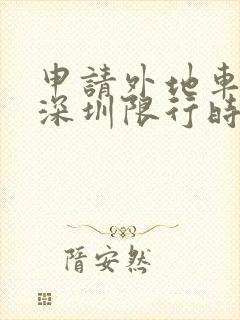 申請外地車
深圳限行時
隋安然